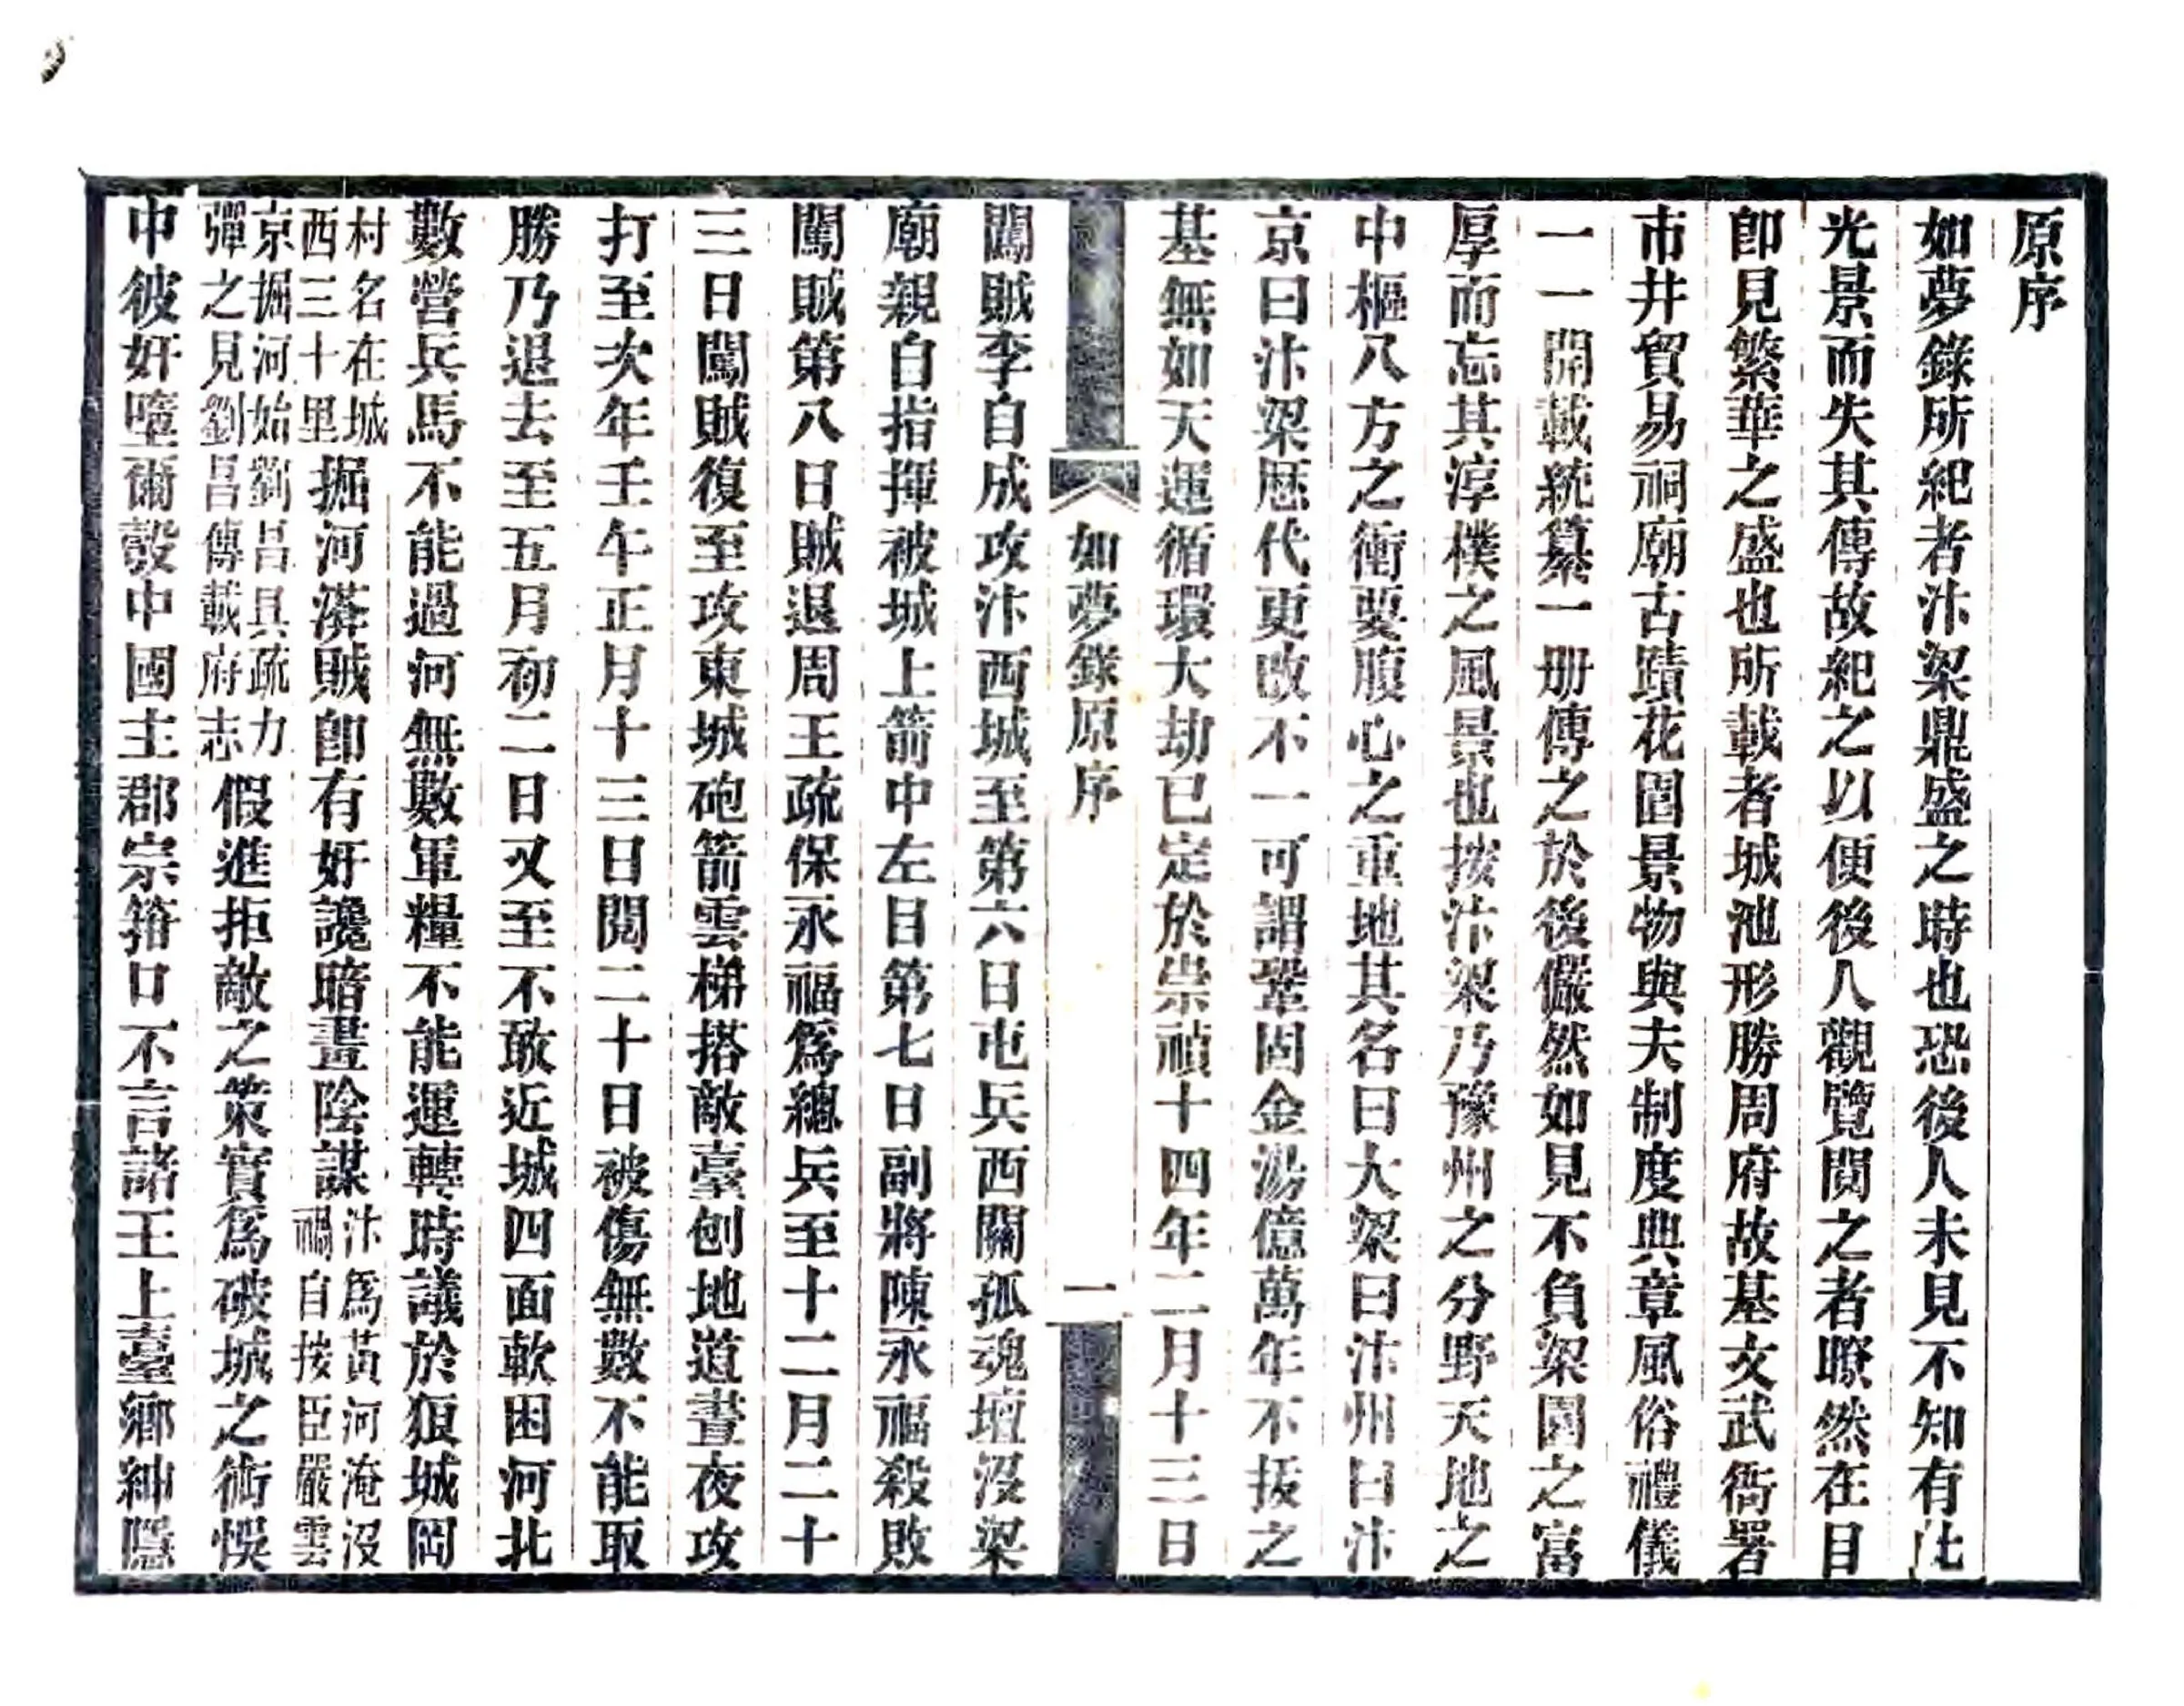 原序
如夢錄所紀者汴梁鼎盛之時也恐後人未見不知有此
光景而失其傳故紀之以便後人觀覽閱之者瞭然在目
卽見繁華之盛也所載者城池形勝周府故基文武衙署
市井貿易祠廟古蹟花園景物與夫制度典章風俗禮儀
一一開載統纂一册傳之於後儼然如見不負梁園之富
厚而忘其淳樸之風景也按汴梁乃豫州之分野天地之
中樞八方之衝要腹心之重地其名曰大梁曰汴州曰汴
京曰汴梁歷代更改不一可謂鞏固金湯億萬年不拔之
基無如天運循環大劫已定於崇禎十四年二月十三日
如夢錄原序
一
闖賊李自成攻汴西城至第六日屯兵西關孤魂壇沒梁
廟親自指揮被城上箭中左目第七日副將陳永福殺敗
闖賊第八日賊退周王疏保永福爲總兵至十二月二十
三日闖賊復至攻東城砲箭雲梯搭敵臺刨地道晝夜攻
打至次年壬午正月十三日閱二十日被傷無數不能取
勝乃退去至五月初二日又至不敢近城四面軟困河北
數營兵馬不能過河無數軍糧不能運轉時議於狼城岡
村名在城
西三十里
掘河淤賊卽有奸讒暗畫陰謀
汴爲黃河淹沒
禍自按臣嚴雲
京掘河始劉昌具疏力
彈之見劉昌傳載府志
假進拒敵之策實爲破城之術悞
中彼奸墮爾彀中國主郡宗箝口不言諸王上臺鄉紳隱